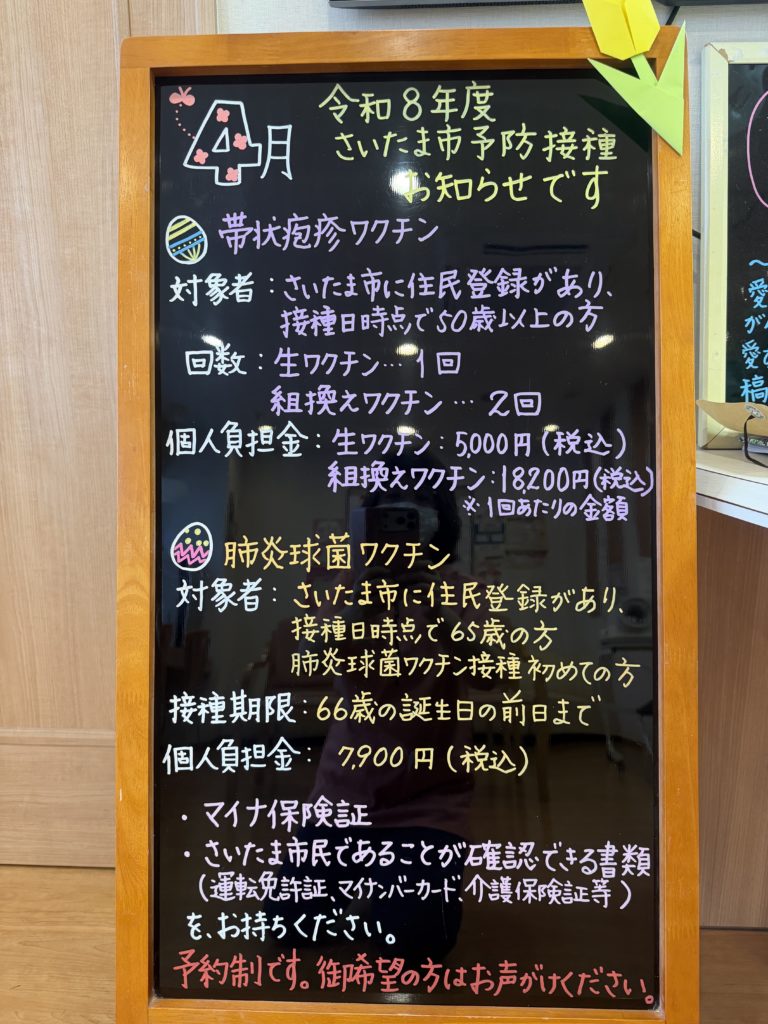 4月
令和8年度
さいたま市予防接種
お知らせです
帯状疱疹ワクチン
対象者：さいたま市に住民登録があり、
接種日時点で50歳以上の方
回数：生ワクチン…1回
組換えワクチン…2回
個人負担金：生ワクチン：5,000円(税込)
組換えワクチン：18,200円(税込)
※1回あたりの金額
肺炎球菌ワクチン
対象者：さいたま市に住民登録があり、
接種日時点で65歳の方
肺炎球菌ワクチン接種初めての方
接種期限：66歳の誕生日の前日まで
個人負担金：7,900円(税込)
・マイナ保険証
・さいたま市民であることが確認できる書類
(運転免許証、マイナンバーカード、介護保険証等)
を、お持ちください。
予約制です。御希望の方はお声がけください。
～
愛
が
愛
稿